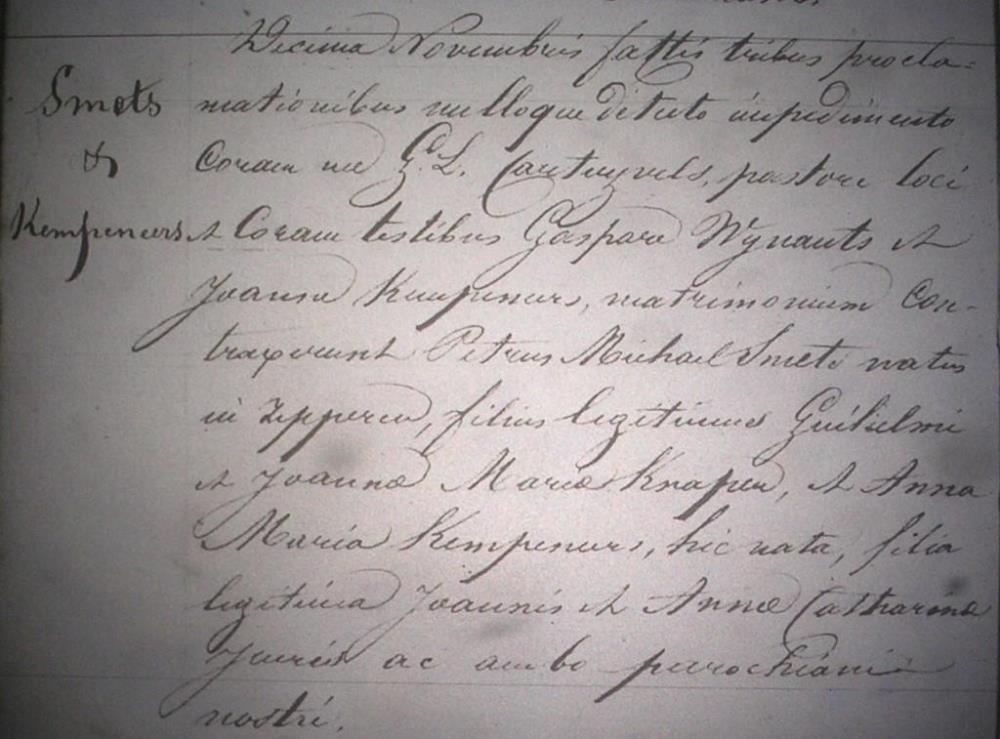 Decima Novembris factis tribus procla=
Smets
mationibus nulloque detecto impedimento
&
Coram me G. L. Cantuyels, pastore loci
Kempeneers
et Coram testibus Gaspare Wynants et
Joanne Kempeneers, matrimonium Con-
traxerunt Petrus Michael Smets natus
in Zepperen, filius legitimus Guilielmi
et Joannæ Mariæ Knapen, et Anna
Maria Kempeneers, hic nata, filia
legitima Joannis et Annæ Catharinæ
ac ambo parochiani
nostri.